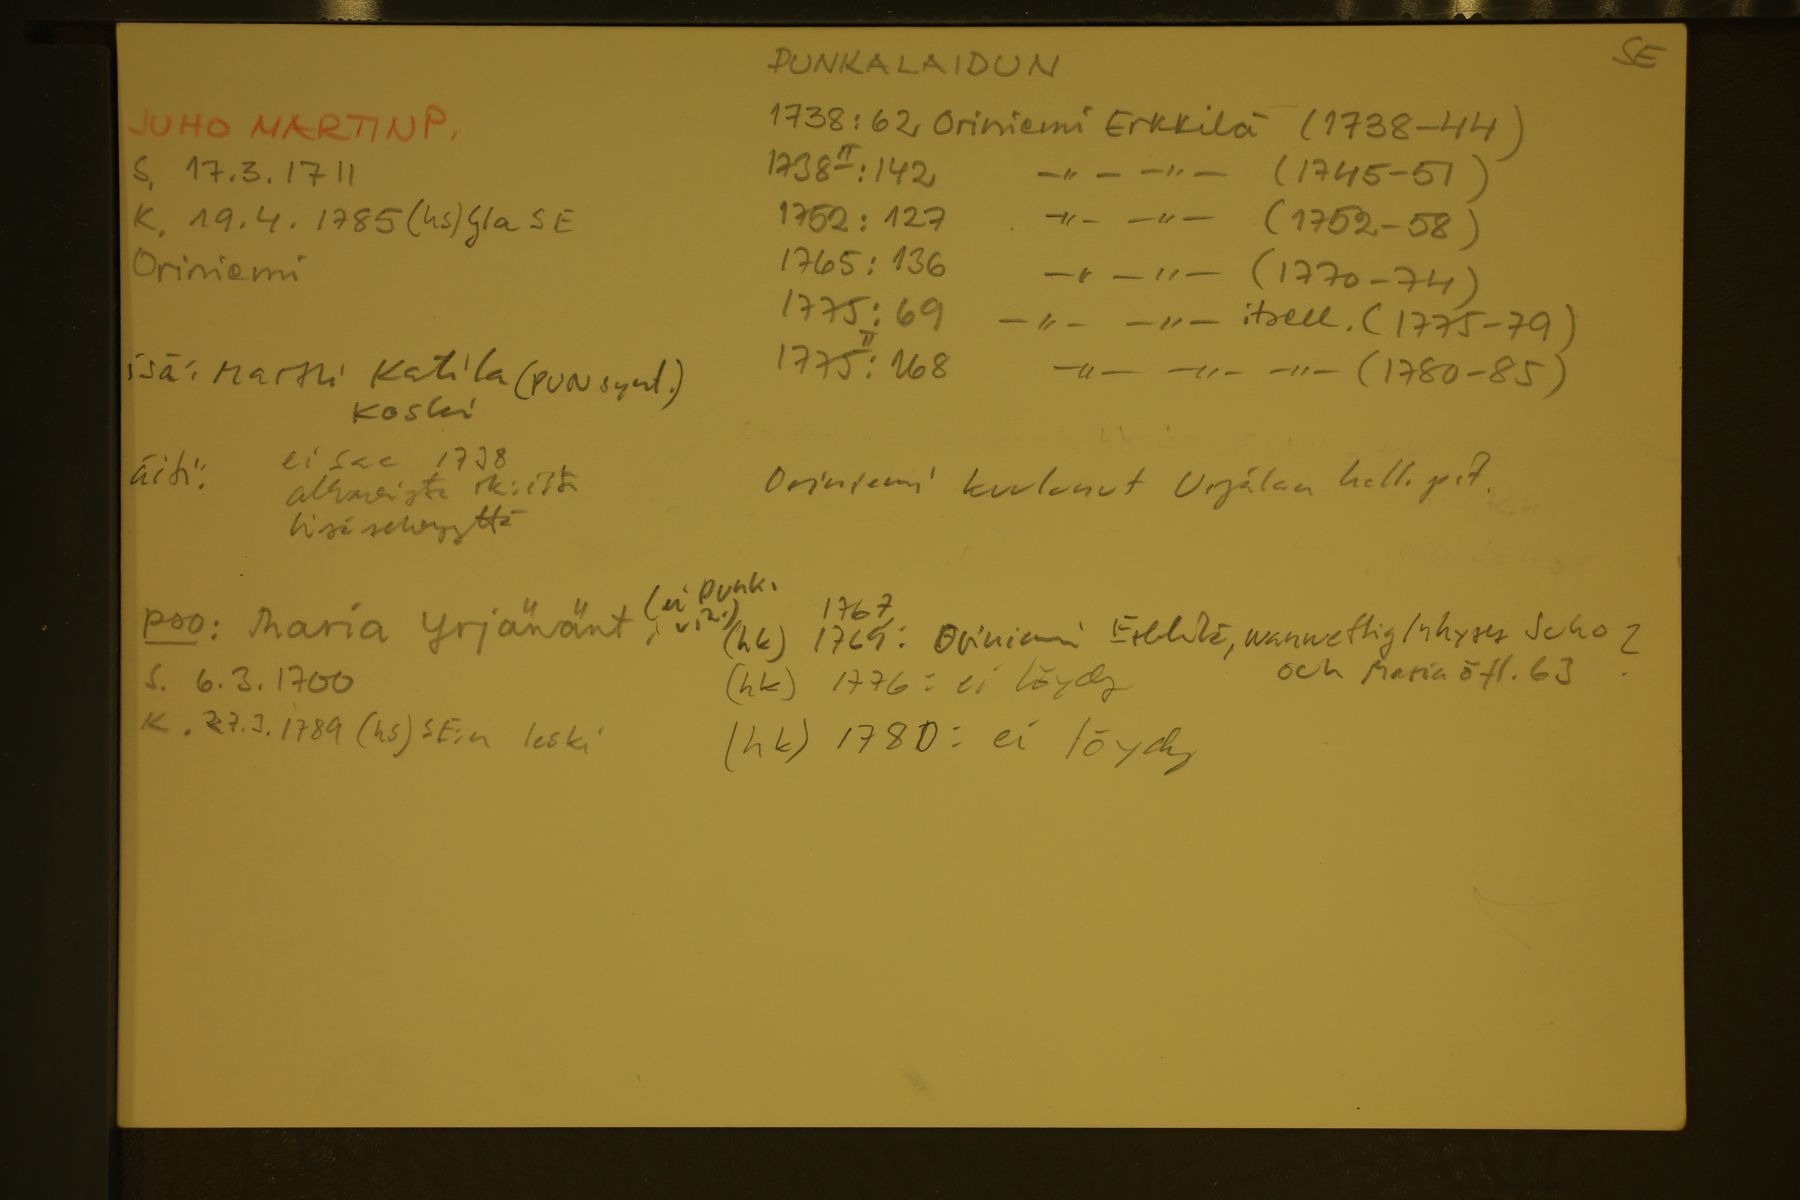 PUNKALAIDUN
SE
JUHO MARTINP.
S. 17.3.1711
K. 19.4.1785 (hs) SE
Oriniemi
isä: Martti Katila (PUN synt.)
Koski
äiti: ei 1738
alkavista rk:istä
lisäselvyyttä
pso: Maria Yrjänänt. (ei Punk.
S. 6.3.1700
K. 27.3.1789 (hs) SE:n leski
1738: 62 Oriniemi Erkkilä (1738-44)
1738 II: 142 -"- -"- (1745-51)
1752: 127 -"- -"- (1752-58)
1765: 136 -"- -"- (1770-74)
1775: 69 -"- -"- itsell. (1775-79)
1775 II: 168 -"- -"- -"- (1780-85)
Oriniemi kuulunut Urjalan hall. pit.
1767
(hk) 1769: Oriniemi Erkkilä, Juho ?
och Maria öfl. 63
(hk) 1776: ei löydy
(hk) 1780: ei löydy